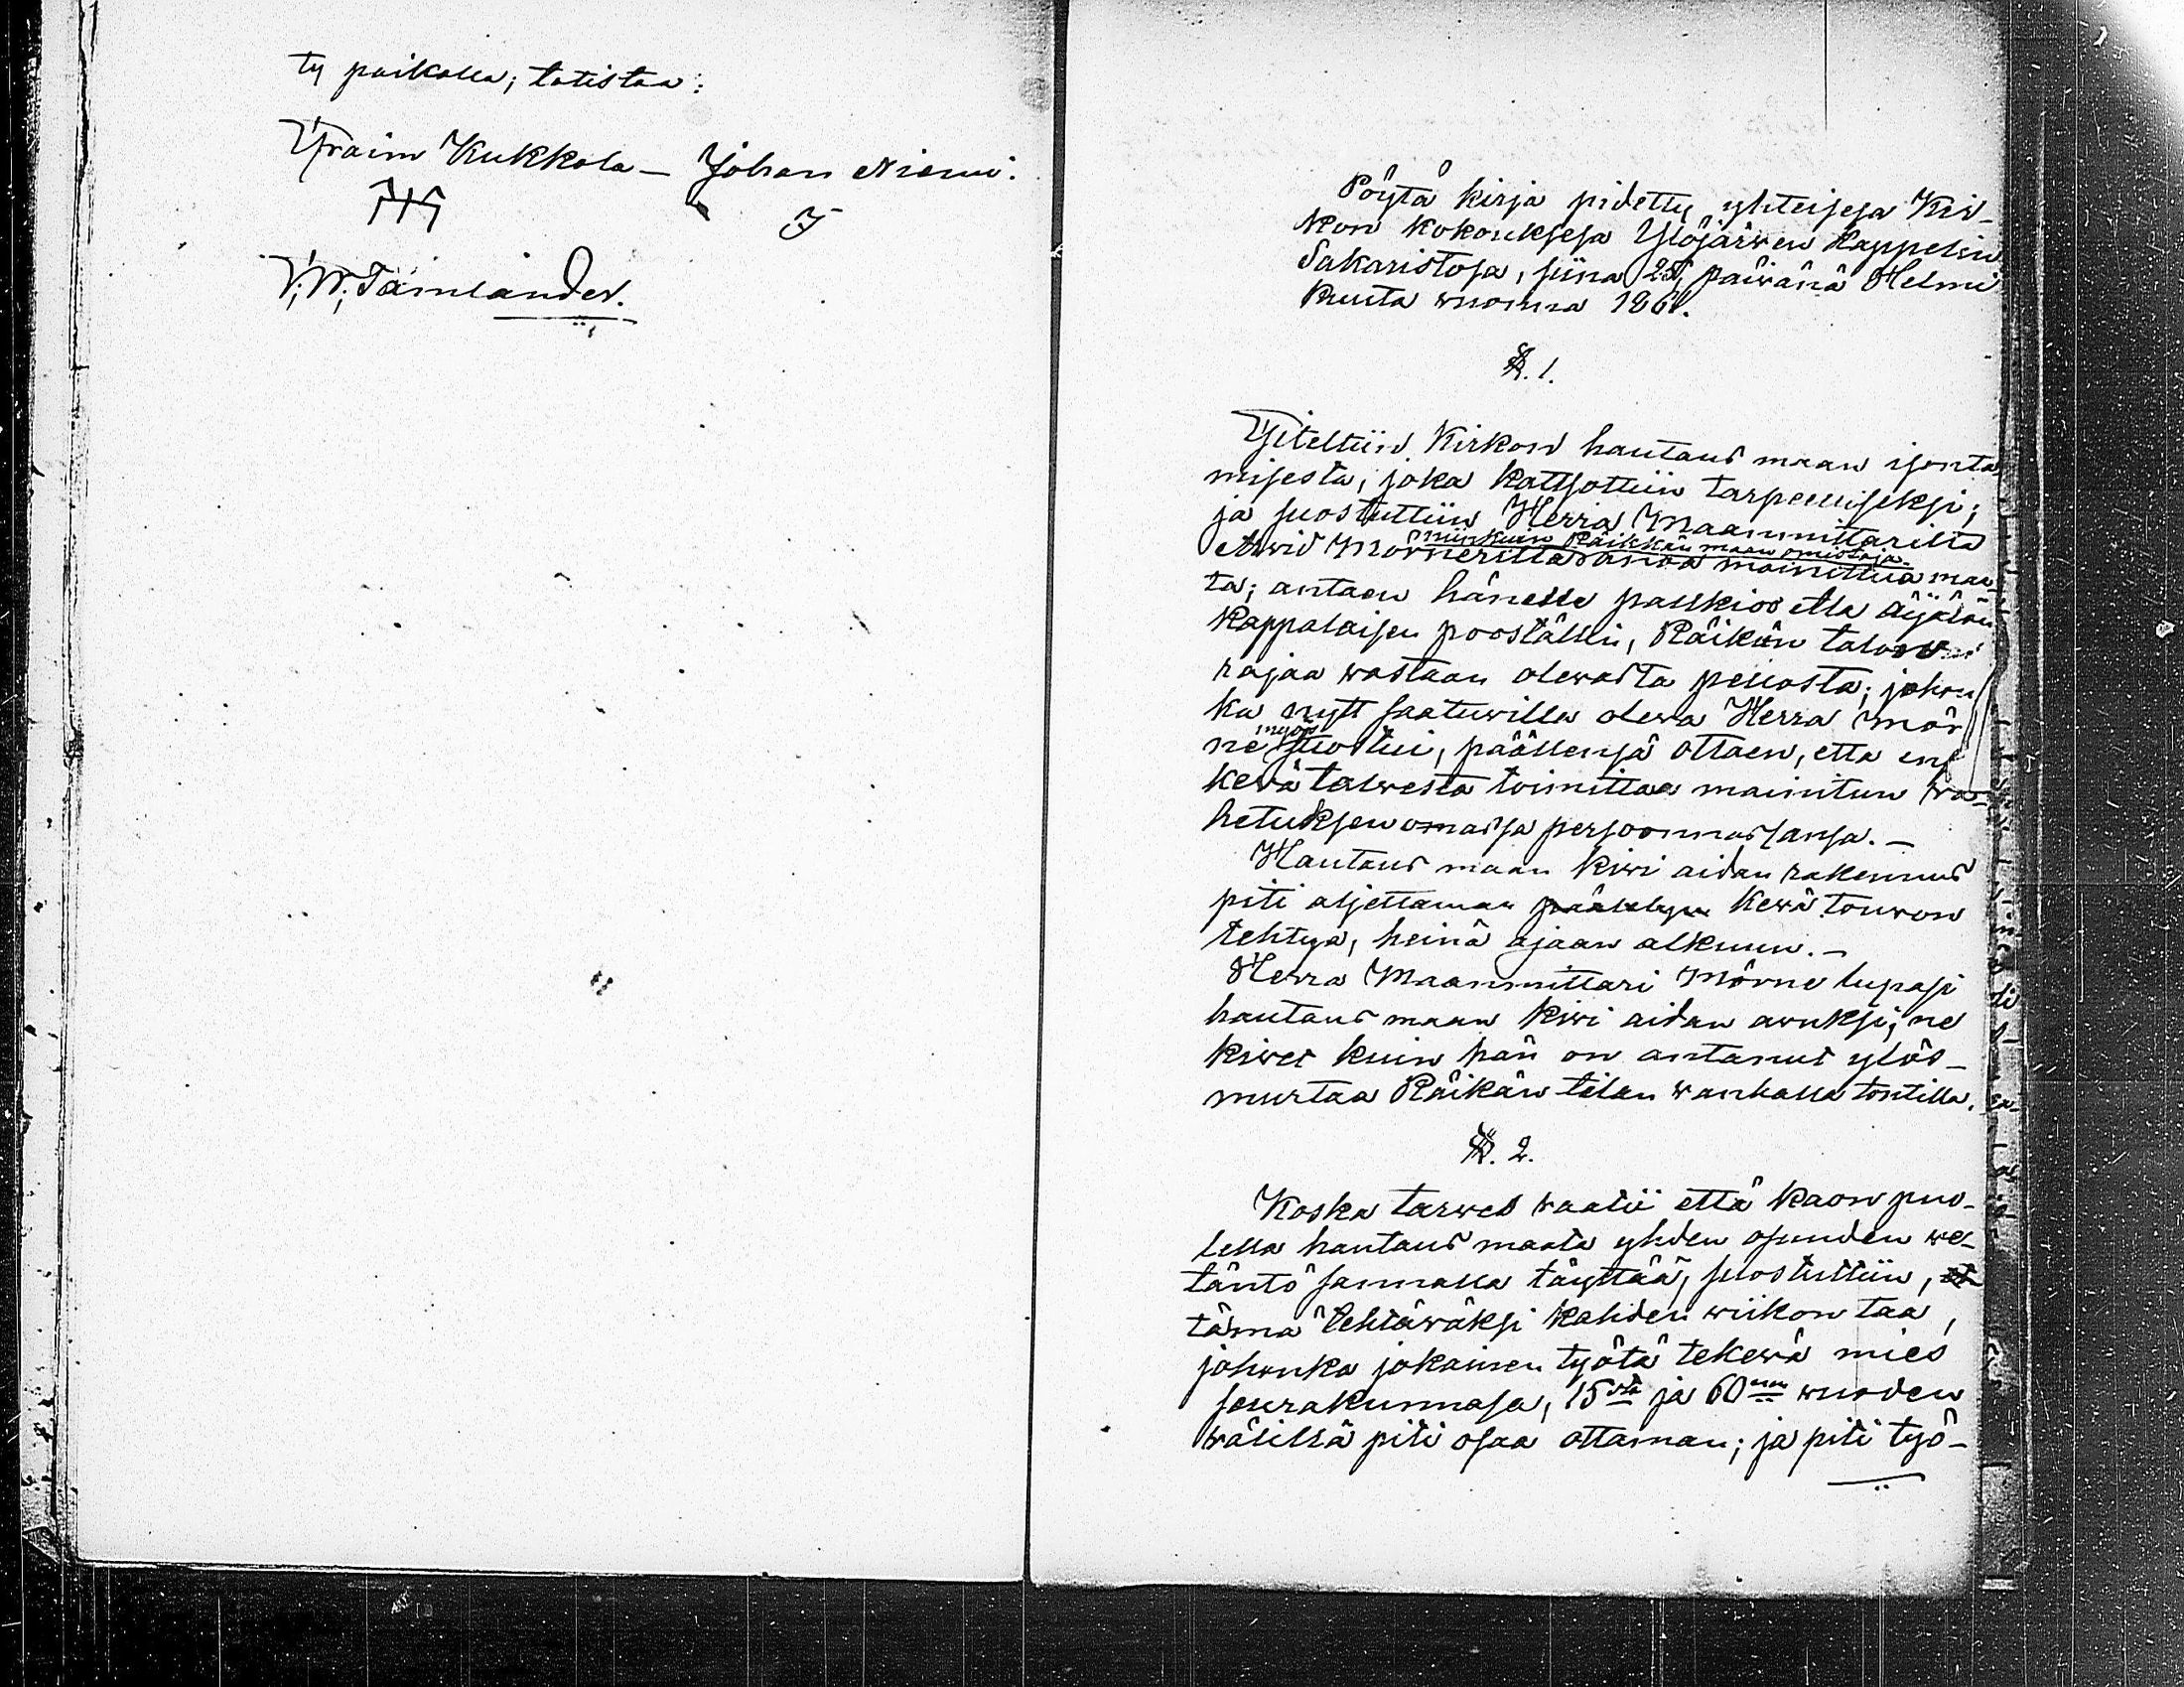 ty paikalla; totistaa:
Efraim Kukkola – Johan Niemi.
V; W; Tämlander.
Pöytä kirja pidetty yhteisesä Kir-
kon kokouksesa Ylöjärwen kappelin
Sakaristosa, siinä 25, päiwänä Helmi
kuuta wuonna 1861.
§. 1.
Yiteltiin Kirkon hautaus maan isonta
misesta, joka kattsottiin tarpeelliseksi;
ja suostuttiin Herra Maanmittarilta
niinkuin Räikkän maan omistaja
Arwid Mörneriltä anoa mainittua maa
ta; antaen hänelle palkkioo ella äijälän
Kappalaisen pooställin, Räikän talon
rajaa wastaan olewasta pellosta; johon
ka nytt saatuwilla olewa Herra Mör
myös
ne suostui, päällensä ottaen, etta ens
kewä talwesta toimittaa mainitun wa-
hetuksen omassa persoonnassansa. –
Hautaus maan kiwi aidan rakennus
piti aljettaman kewä touwon
tehtyä, heinä ajaan alkuun. –
Herra Maanmittari Mörne lupasi
hautaus maan kiwi aidan awuksi, ne
kiwet kuin hän on antanut ylös-
murtaa Räikän tilan wanhalla tontilla.
§. 2.
Koska tarwes waatii että kaon puo-
lella hautaus maata yhden osuuden we-
täntö sannalla täyttää, suostuttiin,
tämä tehtäwäksi kahden wiikon taa,
johonka jokainen työtä tekewä mies
seurakunnasa, 15sta ja 60nnn wuoden
wälillä piti osaa ottaman; ja piti työ-